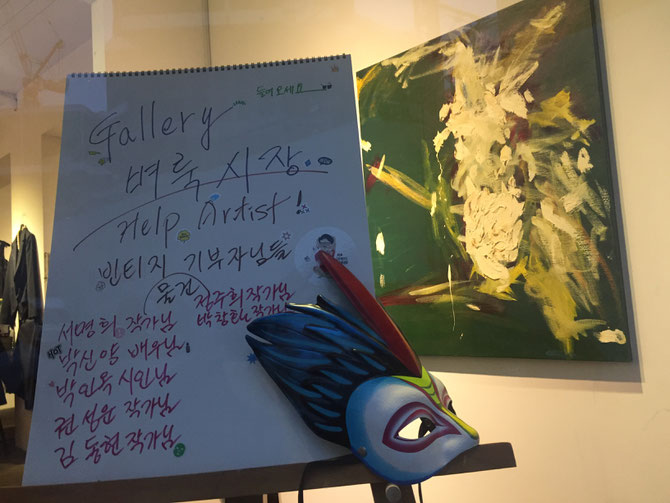 들여보세요
Gallery
벼룩시장
Help Artist!
빈티지 기부자님들
물건
서명희 작가님
박신양 배우님
박인옥 시인님
권섬윤 작가님
김동현 작가님
정주희 작가님
작가님